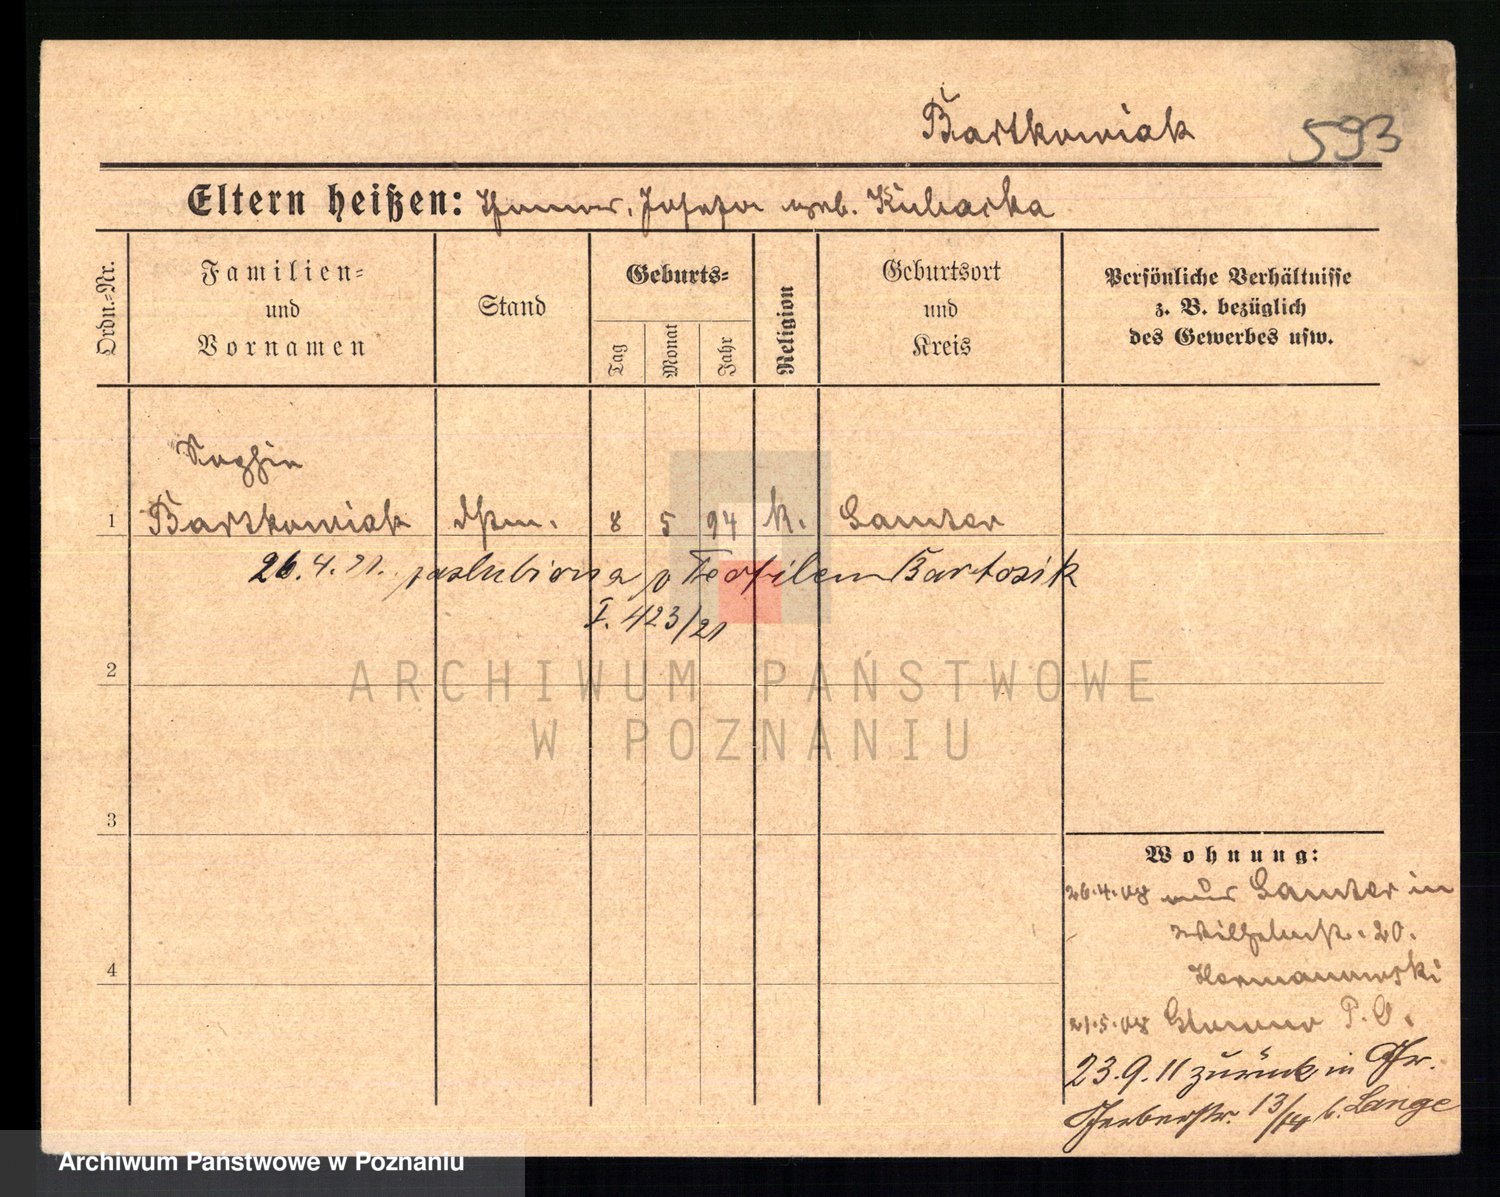 Bartkowiak
593
Eltern heißen: Thomas, Josefa geb. Kubacka
Ordn.-Nr.
Familien-
und
Vornamen
Stand
Geburts-
Tag
Monat
Jahr
Religion
Geburtsort
und
Kreis
Persönliche Verhältnisse
z. B. bezüglich
des Gewerbes usw.
Sophie
1 Bartkowiak 8 5 94 k. Samter
26.4.21. poślubiona p Teofilem Bartosik
I. 423/21
2
ARCHIWUM PAŃSTWOWE
W POZNANIU
3
4
Wohnung:
26.4.08 aus Samter in
Wilhelmstr. 20.
Hermanowski
21.5.08 P. O.
23.9.11 zurück in Gr.
Gerberstr. 13/14 b. Lange
Archiwum Państwowe w Poznaniu